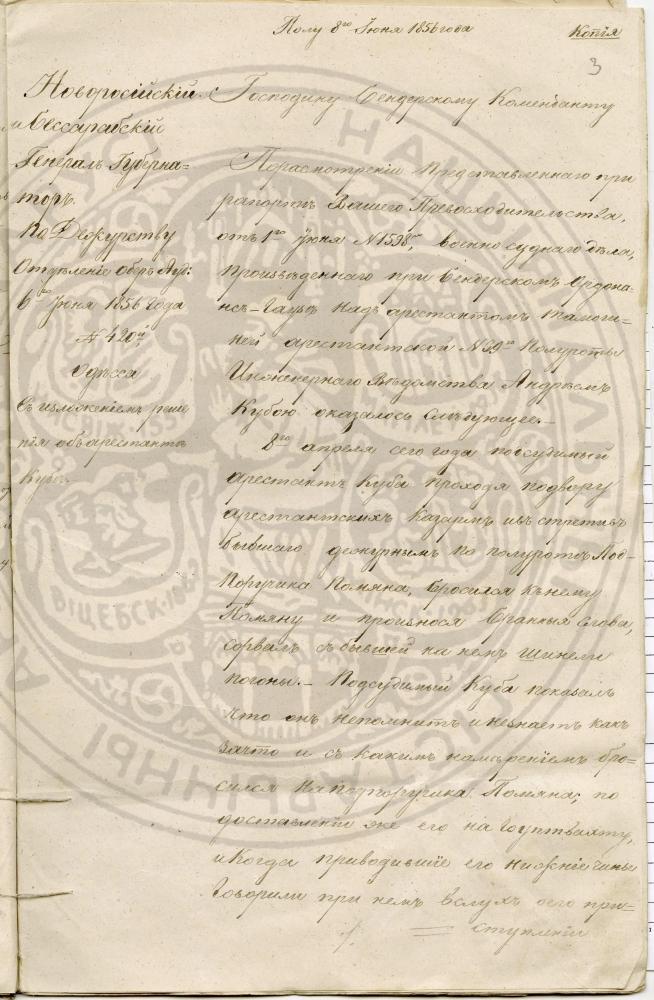 Полу 8го Июня 1856 года
Копія
3
Новоросійскій
и Бессарабскій
Генералъ Губерна=
торъ.
По Дежурству
Отделеніе Оберъ Ауд:
6го Июня 1856 года
№ 420й
Одесса
Съ изложеніемъ реше
нія объ арестанте
Кубе.
Господину Бендерскому Коменданту
Порасмотреніи представленнаго при
рапорте Вашего Превосходительства,
отъ 1го Июня № 1598, военно суднаго дела,
произведеннаго при Бендерскомъ Ордона=
нсъ-Гаузе надъ арестантомъ тамош=
ней арестантской № 29го Полуроты
Инженернаго Ведомства Андреемъ
Кубою оказалось следующее.-
8го апреля сего года подсудимый
арестантъ Куба проходя подвору
арестантскихъ казармъ и встретивъ
бывшаго дежурнымъ по полуроте Под=
поручика Помяна, бросился къ нему
Помяну и произнося бранныя слова,
сорвалъ съ бывшей на немъ шинели
погоны.- Подсудимый Куба показалъ
что онъ непомнитъ и незнаетъ какъ
зачто и съ какимъ намереніемъ бро=
сился на подпоручика Помяна; по
доставленіи же его на гоуптвахту,
и когда приводившіе его нижніе чины
говорили при немъ вслухъ о его при=
ступленіи
НАЦЫЯНАЛЬНЫ
ГІСТАРЫЧНЫ
ВІЦЕБСК